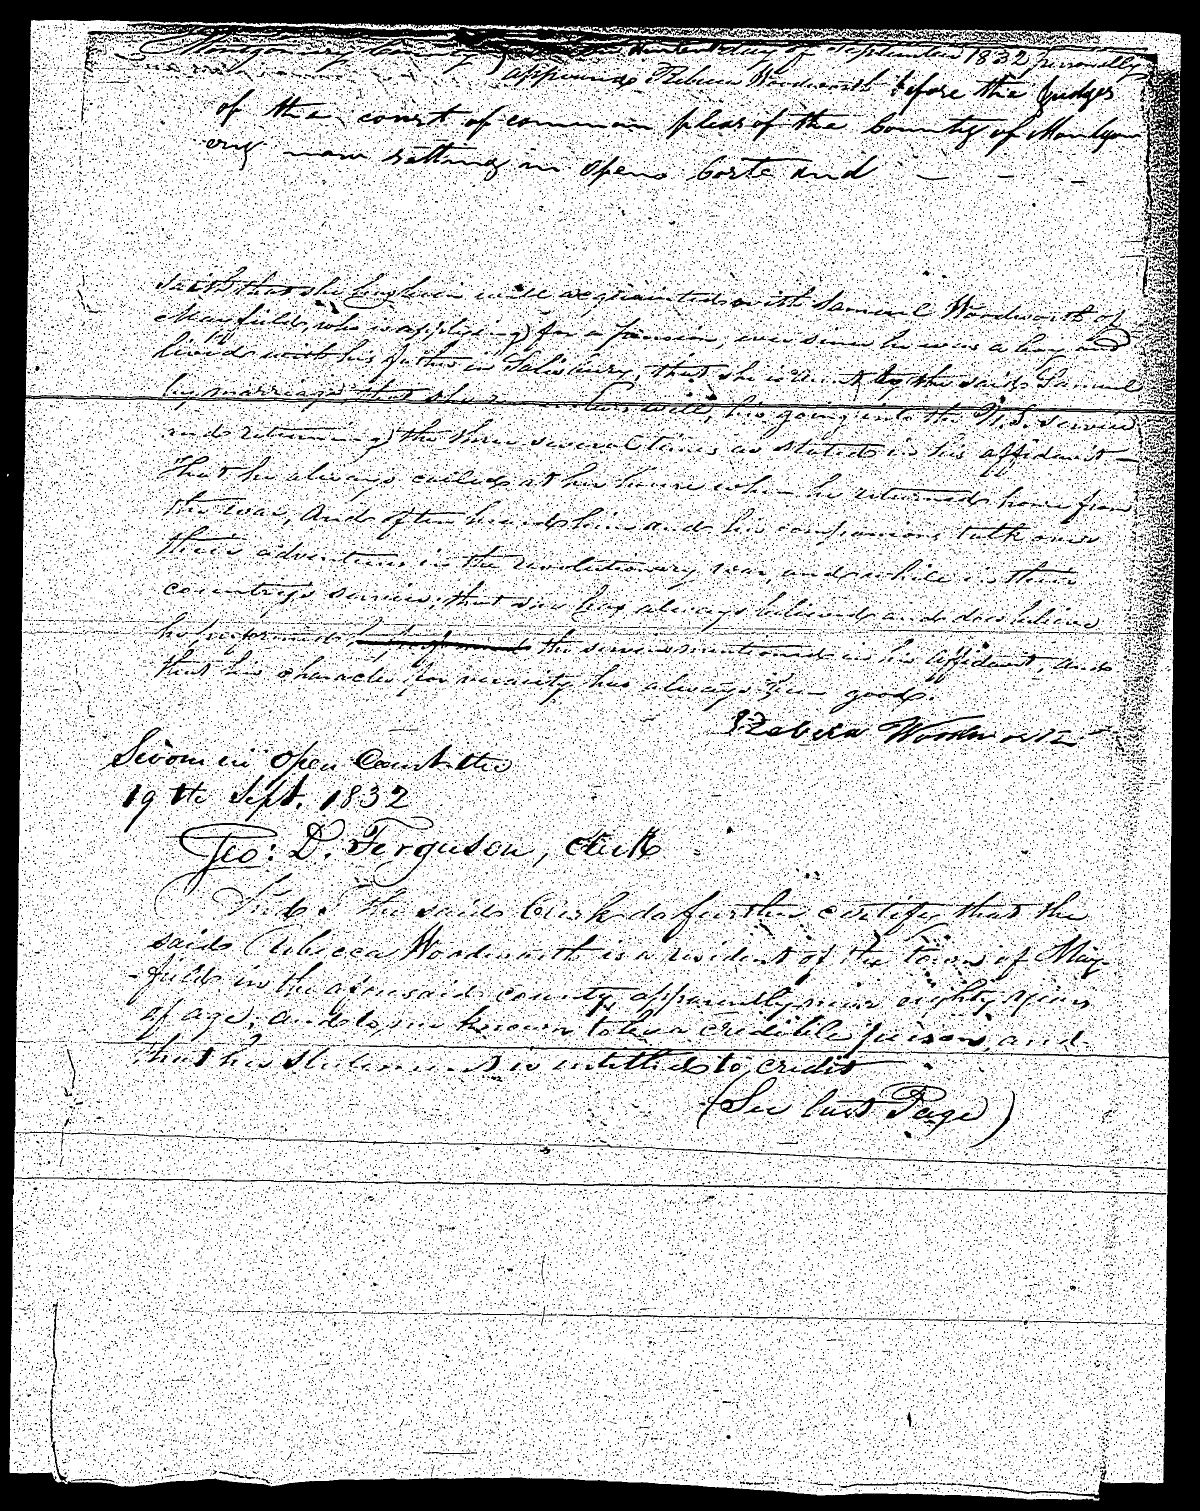 Montgomery County day of September 1832 personally
appeared Rebecca Woodworth before the Judges
of the court of common pleas of the County of Montgom
ery now sitting in open Corte and
saith that she has been well acquainted with Samuel Woodworth of
Mayfield, who is applying for a pension, ever since he was a boy and
lived with his father in Salisbury, that she is Aunt to the said Samuel
by marriage, that she remembers well, his going into the U.S. service
and returning the three several times as stated in his affidavit —
That he always called at her house when he returned home from
the war, And often heard him and his companions talk over
their adventures in the revolutionary war, and while in their
country's service, that she has always believed and does believe
he performed the services mentioned in his affidavit, and
that his character for veracity has always been good.
Rebecca Woodworth
Sworn in open Court the
19th Sept. 1832
Geo: D. Ferguson, Clerk
And I the said Clerk do further certify that the
said Rebecca Woodworth is a resident of the town of May-
-field in the aforesaid county, apparently near eighty years
of age, and to me known to be a credible person, and
that her statement is entitled to credit
(See last Page)